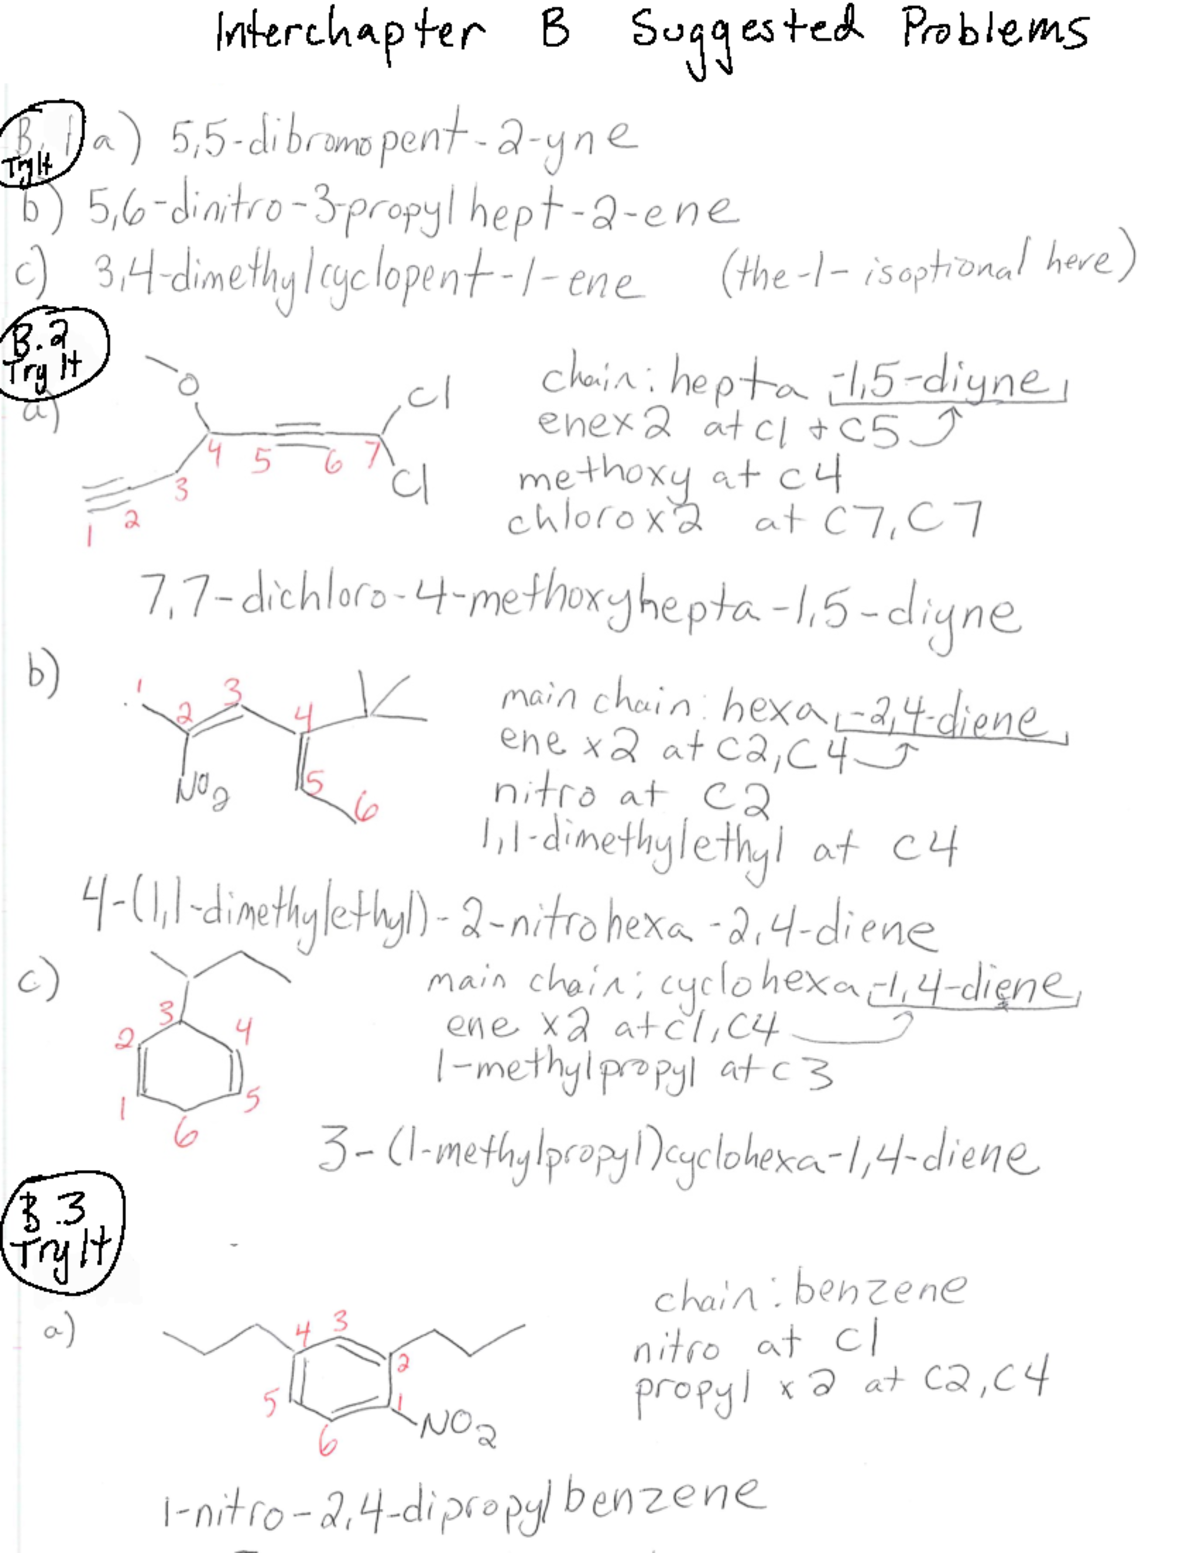 Interchapter B Suggested Problems
B.1 Try It a) 5,5-dibromopent-2-yne
b) 5,6-dinitro-3-propylhept-2-ene
c) 3,4-dimethylcyclopent-1-ene (the -1- is optional here)
B.2 Try It
a)
O
Cl
Cl
1 2 3 4 5 6 7
chain: hepta -1,5-diyne
ene x 2 at C1 + C5
methoxy at C4
chloro x 2 at C7, C7
7,7-dichloro-4-methoxyhepta-1,5-diyne
b)
1 2 3 4 5 6
NO2
main chain: hexa -2,4-diene
ene x 2 at C2, C4
nitro at C2
1,1-dimethylethyl at C4
4-(1,1-dimethylethyl)-2-nitrohexa-2,4-diene
c)
1 2 3 4 5 6
main chain; cyclohexa-1,4-diene
ene x 2 at C1, C4
1-methylpropyl at C3
3-(1-methylpropyl)cyclohexa-1,4-diene
B.3 Try It
a)
4 3 2 1 5 6
NO2
chain: benzene
nitro at C1
propyl x 2 at C2, C4
1-nitro-2,4-dipropylbenzene